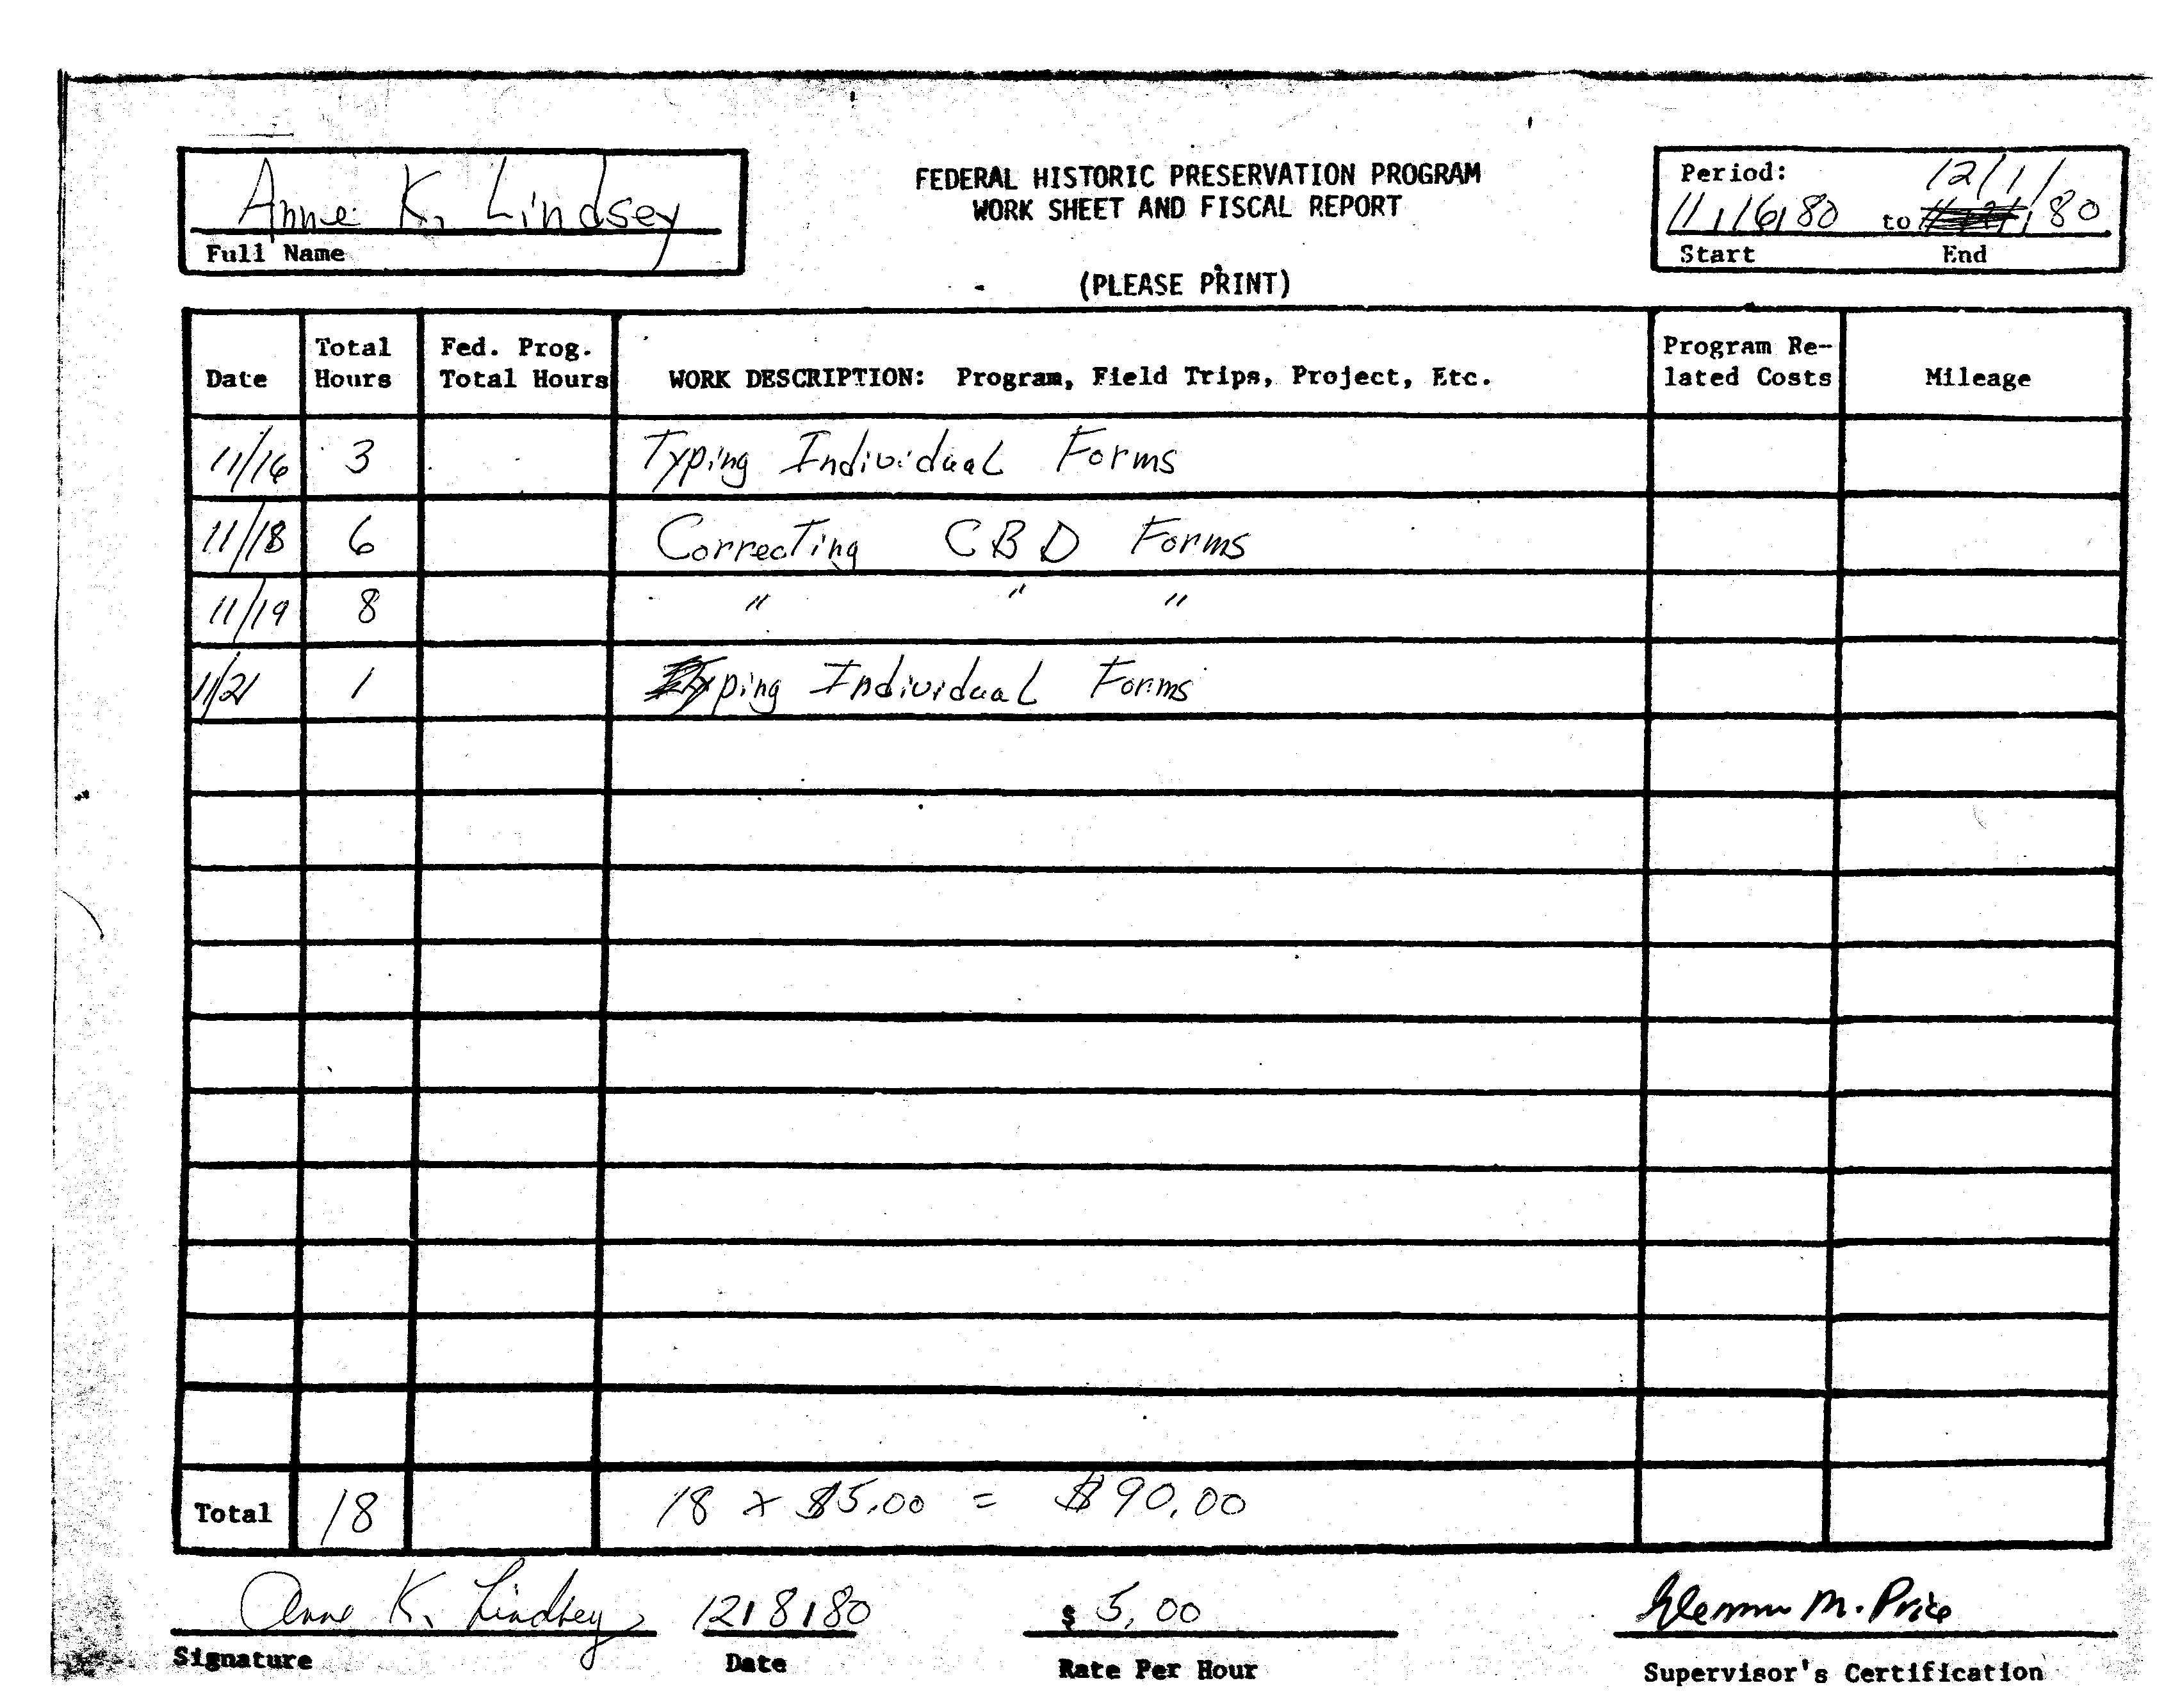 Anne K. Lindsey
Full Name
FEDERAL HISTORIC PRESERVATION PROGRAM
WORK SHEET AND FISCAL REPORT
(PLEASE PRINT)
Period:
12/1/
11/16/80 to /80
Start End
Date Total Hours Fed. Prog. Total Hours WORK DESCRIPTION: Program, Field Trips, Project, Etc. Program Re-lated Costs Mileage
11/16 3 Typing Individual Forms
11/18 6 Correcting CBD Forms
11/19 8 " " "
11/21 1 Typing Individual Forms
Total 18 18 x $5.00 = $90.00
Anne K. Lindsey 12/8/80 $ 5.00 M. Price
Signature Date Rate Per Hour Supervisor's Certification